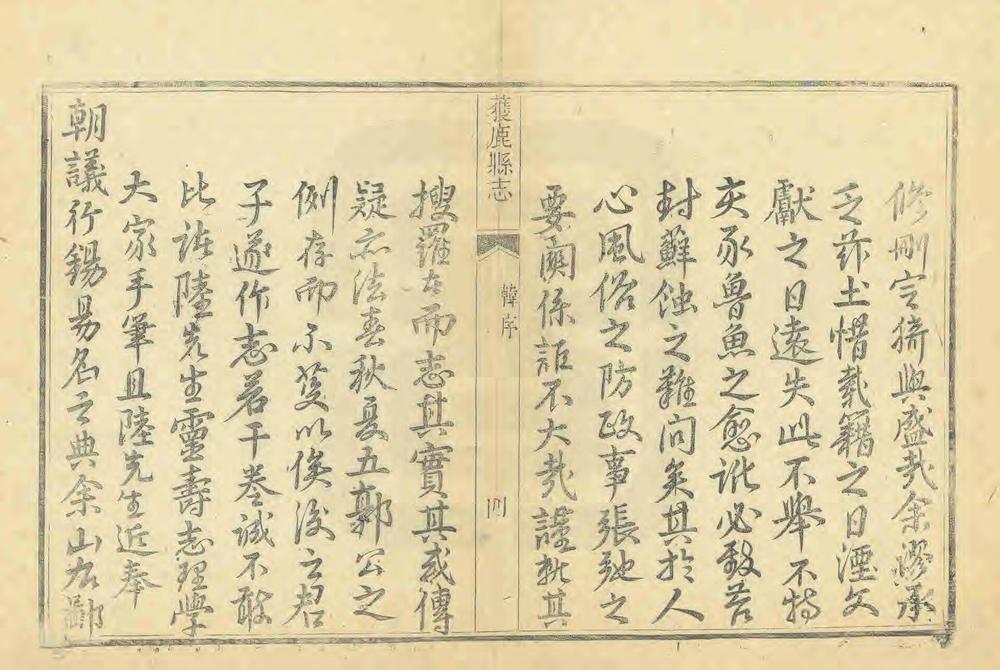 修刪定猗與盛哉余謬承
乏茲土惜載籍之日湮文
獻之日遠失此不舉不特
亥豕魯魚之愈訛必致苔
封蘚蝕之難問矣其於人
心風俗之防政事張弛之
要關係詎不大哉謹抵其
獲鹿縣志
韓序
四
搜羅者而志其實其或傳
疑亦法春秋夏五郭公之
例存而不芟以俟後之君
子遂作志若干卷誠不敢
比諸陸先生靈壽志理學
大家手筆且陸先生近奉
朝議行錫易名之典余山右鄙